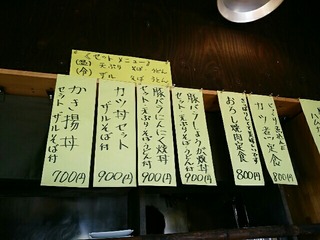 くセットメニュー〉
(温) 天ぷら そば うどん
(冷) ザル そば うどん
かき揚丼
セット ザルそば付
700円
カツ丼セット
ザルそば付
900円
豚バラにんにく焼丼
セット 天ぷらそばうどん付
900円
豚バラしょうが焼丼
セット 天ぷらそばうどん付
900円
おろし焼肉定食
800円
カツ煮定食
800円
ハム